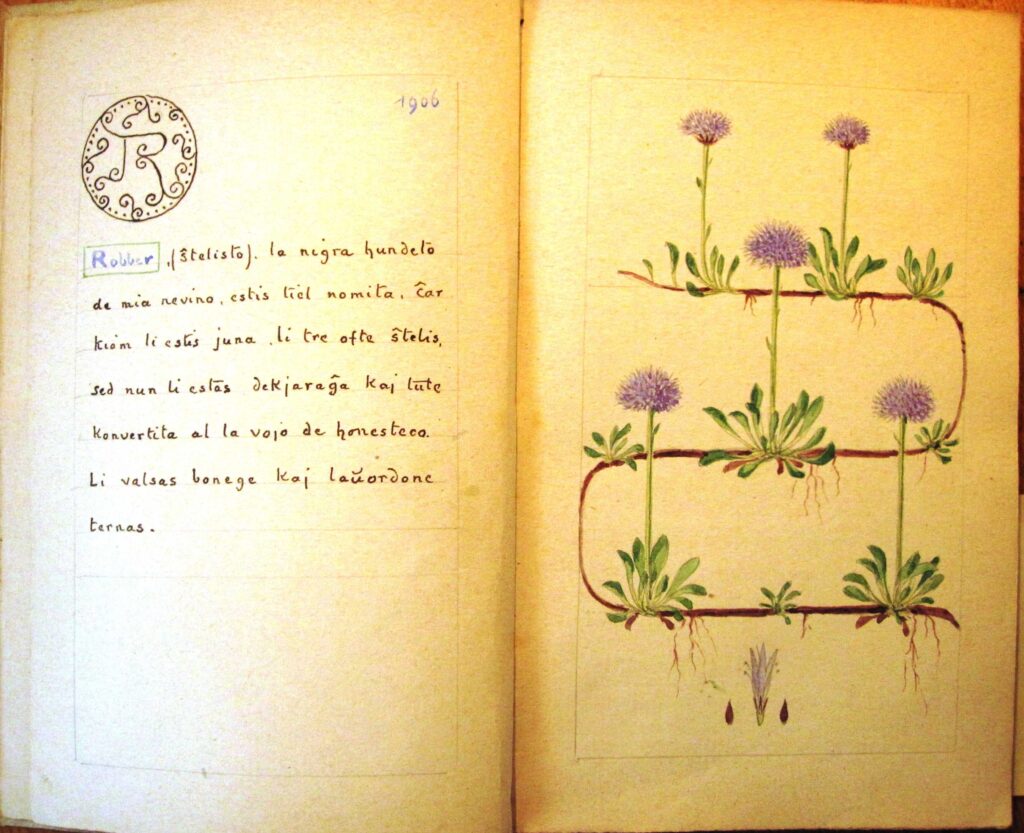 1906
R
Robber, (ŝtelisto). la nigra hundeto
de mia nevino, estis tiel nomita, ĉar
kiam li estis juna, li tre ofte ŝtelis,
sed nun li estas dekjaraĝa kaj tute
konvertita al la vojo de honesteco.
Li valsas bonege kaj laŭordone
ternas.